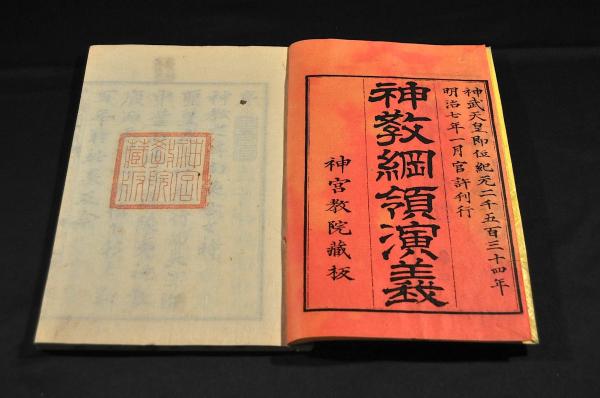 神武天皇即位紀元二千五百三十四年
明治七年一月官許刋行
神教綱領演義
神宮教院藏板
神宮
教院
藏版